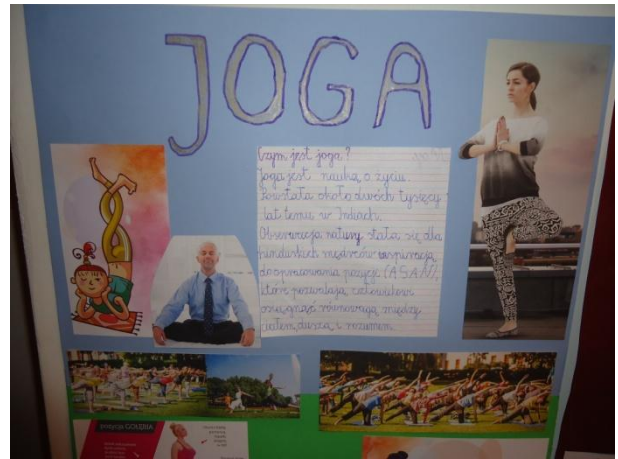 JOGA
Czym jest joga?
Joga jest nauką o życiu.
Powstała około dwóch tysięcy
lat temu w Indiach.
Obserwacja natury stała się dla
hinduskich mędrców inspiracją
do opracowania pozycji (ASAN),
które pozwalają człowiekowi
osiągnąć równowagę między
ciałem, duszą i rozumem.
pozycja GOLĘBIA